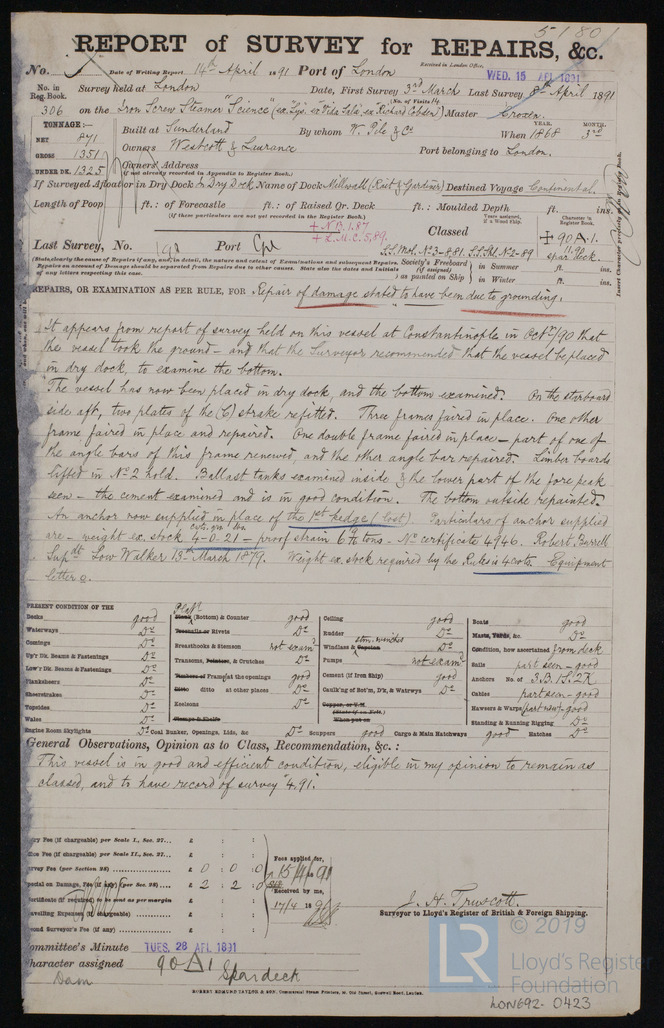 5180
REPORT of SURVEY for REPAIRS, &c.
Received in London Office,
No. Date of Writing Report 14th April 1891 Port of London WED. 15 APL 1891
No. in Reg. Book. Survey held at London Date, First Survey 3rd March Last Survey 8th April 1891
(No. of Visits 14)
306 on the Iron Screw Steamer "Science" Master
TONNAGE:— Built at Sunderland By whom W. Pile & Co When 1868 YEAR. MONTH. 3rd
NET 871
GROSS 1351 Owners Westcott & Laurance Port belonging to London.
UNDER DK. 1325 Owners' Address
(if not already recorded in Appendix to Register Book.)
If Surveyed Afloat or in Dry Dock In Dry Dock Name of Dock Millwall Destined Voyage Continental.
Length of Poop ft.: of Forecastle ft.: of Raised Qr. Deck ft.: Moulded Depth ft. ins.
(If these particulars are not yet recorded in the Register Book.)
+ N.B. 1.87
+ L.M.C. 5.89.
Classed
Years assigned, if a Wood Ship.
Character in Register Book.
+ 90 A.1.
Spar Deck.
Last Survey, No. Port
S.S. Mol. No 3-8.81. S.S. Ld. No 2-89
Society's Freeboard (if assigned) as painted on Ship in Summer ft. ins.
in Winter ft. ins.
REPAIRS, OR EXAMINATION AS PER RULE, FOR Repair of damage stated to have been due to grounding.
It appears from report of survey held on this vessel at Constantinople in Octr/90 that
the vessel took the ground - and that the Surveyor recommended that the vessel be placed
in dry dock, to examine the bottom.
The vessel has now been placed in dry dock, and the bottom examined. On the starboard
side aft, two plates of the (C) strake refitted. Three frames faired in place. One other
frame faired in place and repaired. One double frame faired in place - part of one of
the angle bars of this frame renewed, and the other angle bar repaired. Limber boards
lifted in No 2 hold. Ballast tanks examined inside & the lower part of the fore peak
seen - the cement examined and is in good condition. The bottom outside repainted.
An anchor now supplied in place of the 1st kedge (lost). Particulars of anchor supplied
are - weight ex. stock 4-0-21 - proof strain 6 tons - No certificate 4946. Robert Barrett
Supdt Low Walker 13th March 1879. Weight ex. stock required by the Rules is 4 cwts. Equipment
Letter
PRESENT CONDITION OF THE
Decks good
Waterways Do
Comings Do
Up'r Dk. Beams & Fastenings Do
Low'r Dk. Beams & Fastenings Do
Planksheers Do
Sheerstrakes Do
Topsides Do
Wales Do
Engine Room Skylights Do
Plank (Bottom) & Counter good
Treenails or Rivets Do
Breasthooks & Stemson not examd
Transoms, Pointers, & Crutches Do
Timbers of Frame at the openings good
Ditto ditto at other places Do
Keelsons Do
Clamps & Shelfs
Coal Bunker, Openings, Lids, &c Do
Ceiling good
Rudder Do
Windlass & Capstan Do
stm. winches
Pumps not examd
Cement (if Iron Ship) good
Caulk'g of Bot'm, D'k, & Watrways Do
Copper, or Y.M.
(State if on Felt.)
When put on
Scuppers good
Boats good
Masts, Yards, &c. Do
Condition, how ascertained from deck
Sails part seen - good
Anchors No. of 3.B.1S.2K
Cables part seen - good
Hawsers & Warps (part new) - good
Standing & Running Rigging Do
Cargo & Main Hatchways good Hatches Do
General Observations, Opinion as to Class, Recommendation, &c.:
This vessel is in good and efficient condition, eligible in my opinion to remain as
classed, and to have record of survey "4.91."
Survey Fee (per Section 28) £ 0 : 0 : 0
Special on Damage, Fee (if any) (per Sec. 28) £ 2 : 2 : 0
Certificate (if required) to be sent as per margin
Travelling Expenses (if chargeable) £ : :
Second Surveyor's Fee (if any) £ : :
Fees applied for, 15/4/91
Received by me, 17/4 1891
J. H. Truscott.
Surveyor to Lloyd's Register of British & Foreign Shipping.
Committee's Minute TUES. 28 APL 1891
Character assigned 90 A 1
Spardeck
ROBERT EDMUND TAYLOR & SON, Commercial Steam Printers, 19, Old Street, Goswell Road, London.
© 2019
LR
Lloyd's Register
Foundation
LON692-0423